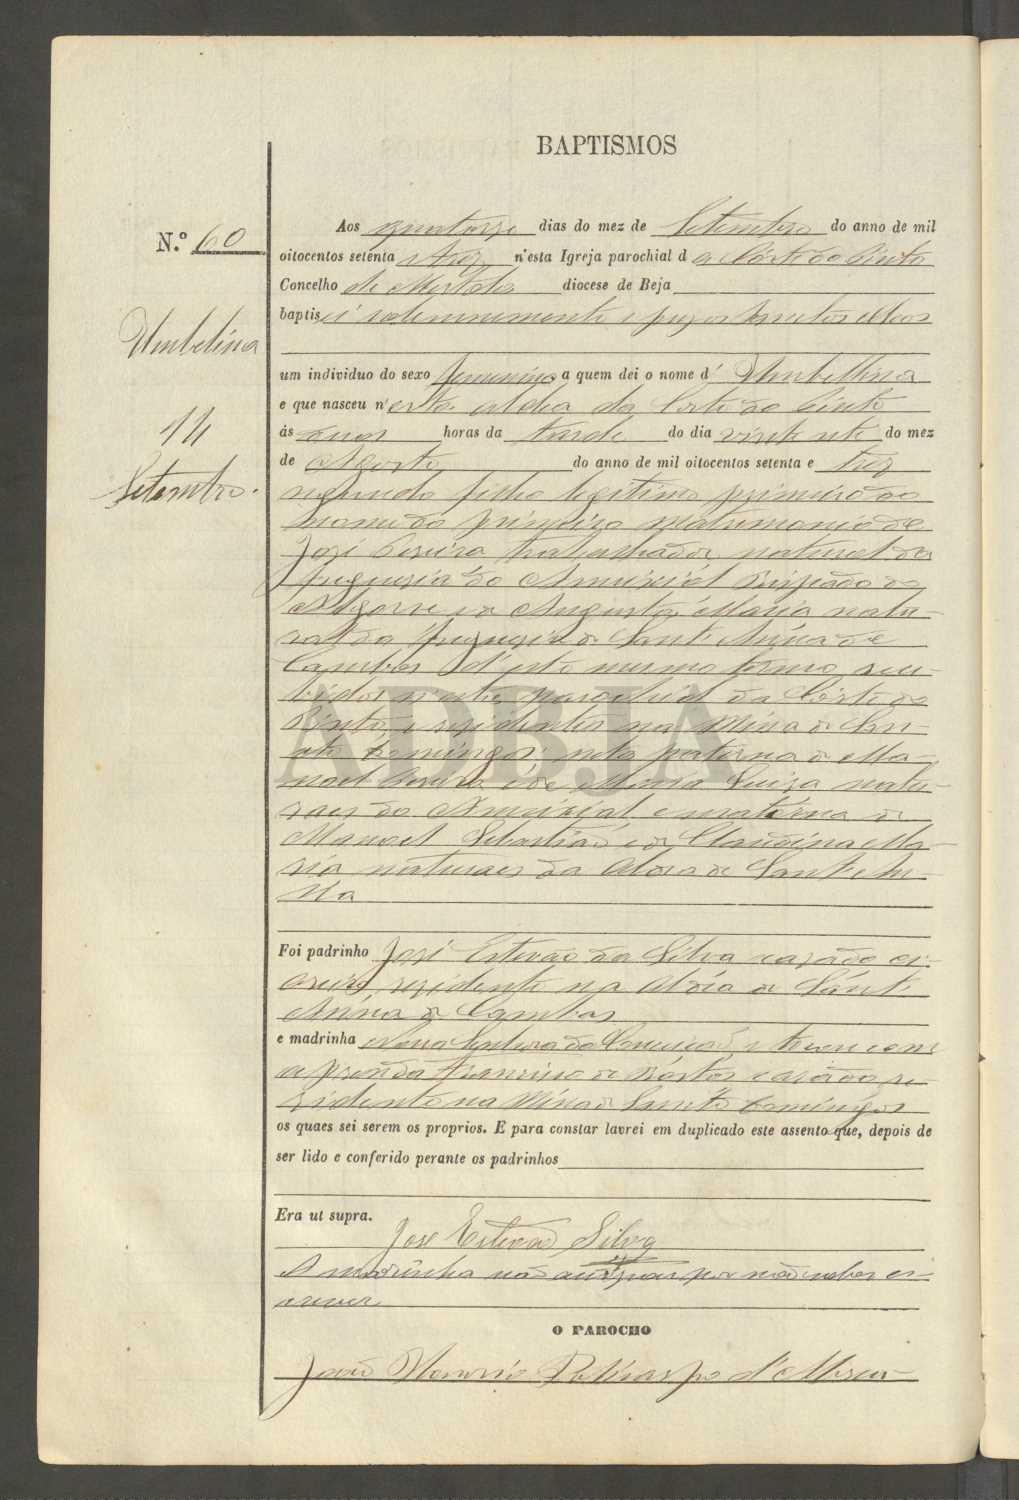 BAPTISMOS
N.º 60
Umbelina
14
Setembro.
Aos quatorze dias do mez de Setembro do anno de mil
oitocentos setenta e trez n'esta Igreja parochial d a Côrte do Pinto
Concelho de Mertola diocese de Beja
baptisei solemnemente e puz os Santos Oleos
um individuo do sexo femenino a quem dei o nome d' Umbellina
e que nasceu n'esta aldeia da Corte do Pinto
ás duas horas da tarde do dia vinte sete do mez
de Agosto do anno de mil oitocentos setenta e trez
segundo filho legitimo primeiro do
nome do primeiro matrimonio de
José Pereira trabalhador natural da
freguesia do Ameixial Bispado do
Algarve e de Augusta Maria natu-
ral da freguezia de Sant' Anna de
Cambas d'este mesmo termo, rece-
bidos n'esta parochial da Côrte do
Pinto e residentes na Mina de San-
to Domingos; neta paterna de Ma-
noel Pereira e de Maria Luiza natu-
raes do Ameixial e materna de
Manoel Sebastião e de Claudina Ma-
ria naturaes da Aldeia de Sant' An-
na
Foi padrinho José Estevão da Silva cazado
residente na Aldeia de Sant'
Anna de Cambas
e madrinha Nossa Senhora da Conceição e tocou com
a prenda Francisco de casado re-
zidente na Mina de Santo Domingos
os quaes sei serem os proprios. E para constar lavrei em duplicado este assento que, depois de
ser lido e conferido perante os padrinhos
Era ut supra.
José Estevão Silva
A madrinha não assignou por não saber es-
crever
O PAROCHO
João Policarpo d'
ADBJA